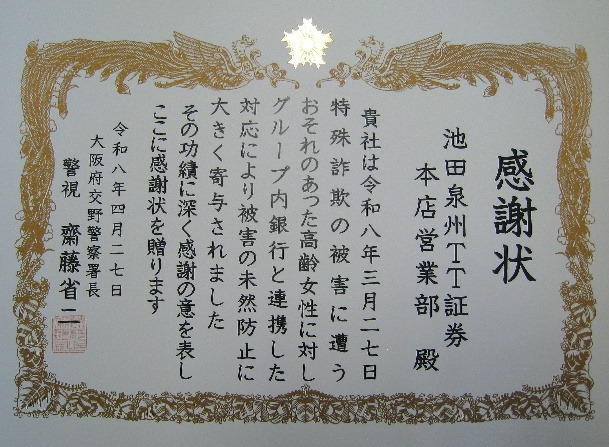 感謝状
池田泉州TT証券
本店営業部 殿
貴社は令和八年三月二七日
特殊詐欺の被害に遭う
おそれのあった高齢女性に対し
グループ内銀行と連携した
対応により被害の未然防止に
大きく寄与されました
その功績に深く感謝の意を表し
ここに感謝状を贈ります
令和八年四月二七日
大阪府交野警察署長
警視 齋藤省一